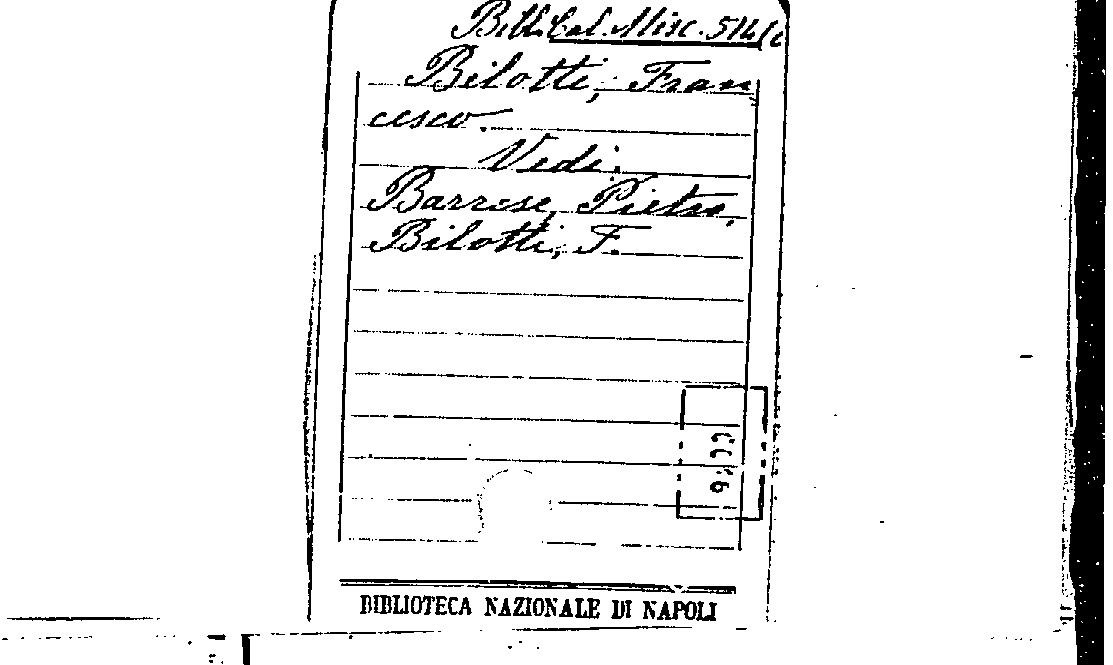 Bibl. Cal. Misc. 514(
Bilotti, Fran
cesco.
Vedi:
Barrese, Pietro,
Bilotti, F.
BIBLIOTECA NAZIONALE DI NAPOLI